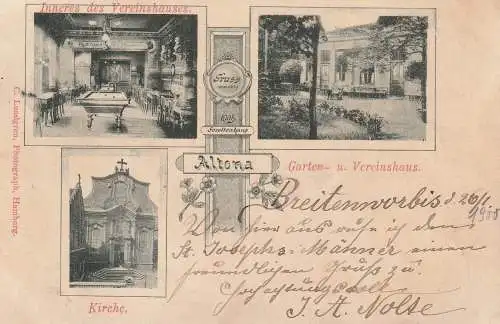 Inneres des Vereinshauses.
Gruss
aus dem
Altona
Garten- u. Vereinshaus.
Kirche.
C. Lundgren, Photograph, Hamburg.
Breitenworbis d. 26/1
1900
Von hier aus rufe ich dem
St. Josephs-Männer einen
freundlichen Gruß zu.
Hochachtungsvoll
J. A. Nolte